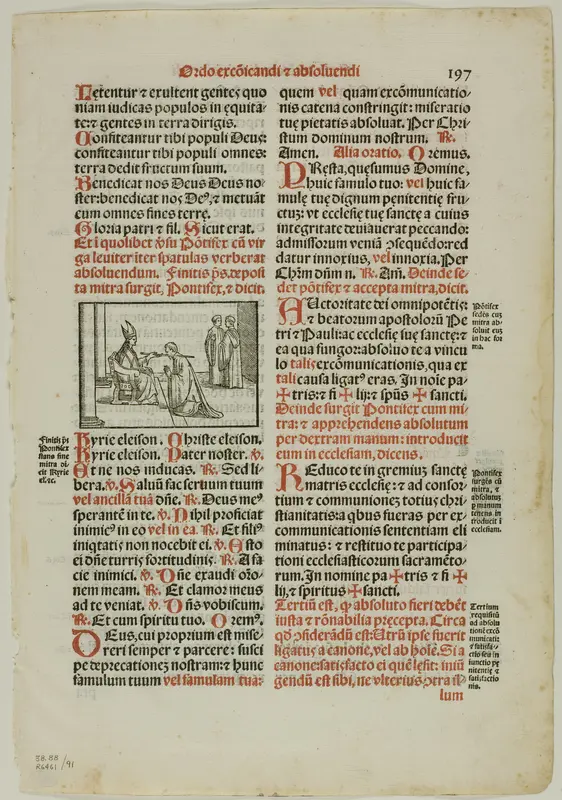 Ordo excõicandi ⁊ absoluendi
197
Lętentur ⁊ exultent gentes quo
niam iudicas populos in ęquita
te: ⁊ gentes in terra dirigis.
Confiteantur tibi populi Deus:
confiteantur tibi populi omnes:
terra dedit fructum suum.
Benedicat nos Deus Deus no
ster: benedicat nos Deꝰ, ⁊ metuāt
eum omnes fines terrę.
Gloria patri ⁊ fil. Sicut erat.
Et ī quolibet v̄su Põtifex cũ vir
ga leuiter iter spatulas verberat
absoluendum. Finitis ps. deposi
ta mitra surgit, Pontifex, ⁊ dicit.
Kyrie eleison. Christe eleison.
Kyrie eleison. Pater noster. ℣.
Et ne nos inducas. ℟. Sed li-
bera. ℣. Saluũ fac seruum tuum
vel ancillā tuā dñe. ℟. Deus meꝰ
sperantē in te. ℣. Nihil proficiat
inimicꝰ in eo vel in ea. ℟. Et filiꝰ
iniqtatis non nocebit ei. ℣. Esto
ei dñe turris fortitudinis. ℟. A fa
cie inimici. ℣. Dñe exaudi orõ-
nem meam. ℟. Et clamor meus
ad te veniat. ℣. Dñs vobiscum.
℟. Et cum spiritu tuo. Oremꝰ.
DEus, cui proprium est mise-
reri semper ⁊ parcere: susci
pe deprecationeʒ nostram: ⁊ hunc
famulum tuum vel famulam tuā:
Finitis ps
Pontifex
stans sine
mitra di-
cit Kyrie
el. ⁊c.
quem vel quam excõmunicatio-
nis catena constringit: miseratio
tuę pietatis absoluat. Per Chri-
stum dominum nostrum. ℟.
Amen. Alia oratio. Oremus.
PRęsta, quęsumus Domine,
huic famulo tuo: vel huic fa-
mulę tuę dignum pęnitentię fru-
ctuʒ: vt ecclesię tuę sanctę a cuius
integritate deuiauerat peccando:
admissorum veniā ꝯsequēdo: red
datur innoxius, vel innoxia. Per
Chrm dñm n. ℟. Am̄. Deinde se-
det põtifex ⁊ accepta mitra, dicit.
AUctoritate dei omnipotētis:
⁊ beatorum apostoloꝝ Pe
tri ⁊ Pauli: ac ecclesię suę sanctę: ⁊
ea qua fungor: absoluo te a vincu
lo talis excõmunicationis, qua ex
tali causa ligatꝰ eras. In noīe pa
✠tris: ⁊ fi ✠ lij: ⁊ spũs ✠ sancti.
Deinde surgit Pontifex cum mi-
tra: ⁊ apprehendens absolutum
per dextram manum: introducit
eum in ecclesiam, dicens.
REduco te in gremiuʒ sanctę
matris ecclesię: ⁊ ad consor-
tium ⁊ communioneʒ totiuſ chri-
stianitatis: a qbus fueras per ex-
communicationis sententiam eli
minatus: ⁊ restituo te participa-
tioni ecclesiasticorum sacramēto-
rum. In nomine pa✠tris ⁊ fi ✠
lij, ⁊ spiritus ✠ sancti.
Tertiũ est, ꝙ absoluto fieri debēt
iusta ⁊ rõnabilia pręcepta. Circa
qđ ꝯsiderādũ est: Utrũ ipse fuerit
ligatus a canone, vel ab hoīe. Si a
canone: satisfacto ei quē lesit: iniũ
gendũ est sibi, ne vlterius, ꝯtra il-
lum
Põtifex
sedēs cũ
mitra ab-
soluit eũ
in hac for
ma.
Pontifex
surgēs cũ
mitra, ⁊
absolutũ
ꝑ manum
tenens in
troducit ī
ecclesiam.
Tertium
requisitũ
ad absolu
tionē excõ
municati:
⁊ satisfa-
ctio seu in
iunctio pę
nitentię ⁊
satisfactio
nis.
38.88
R6461 /91